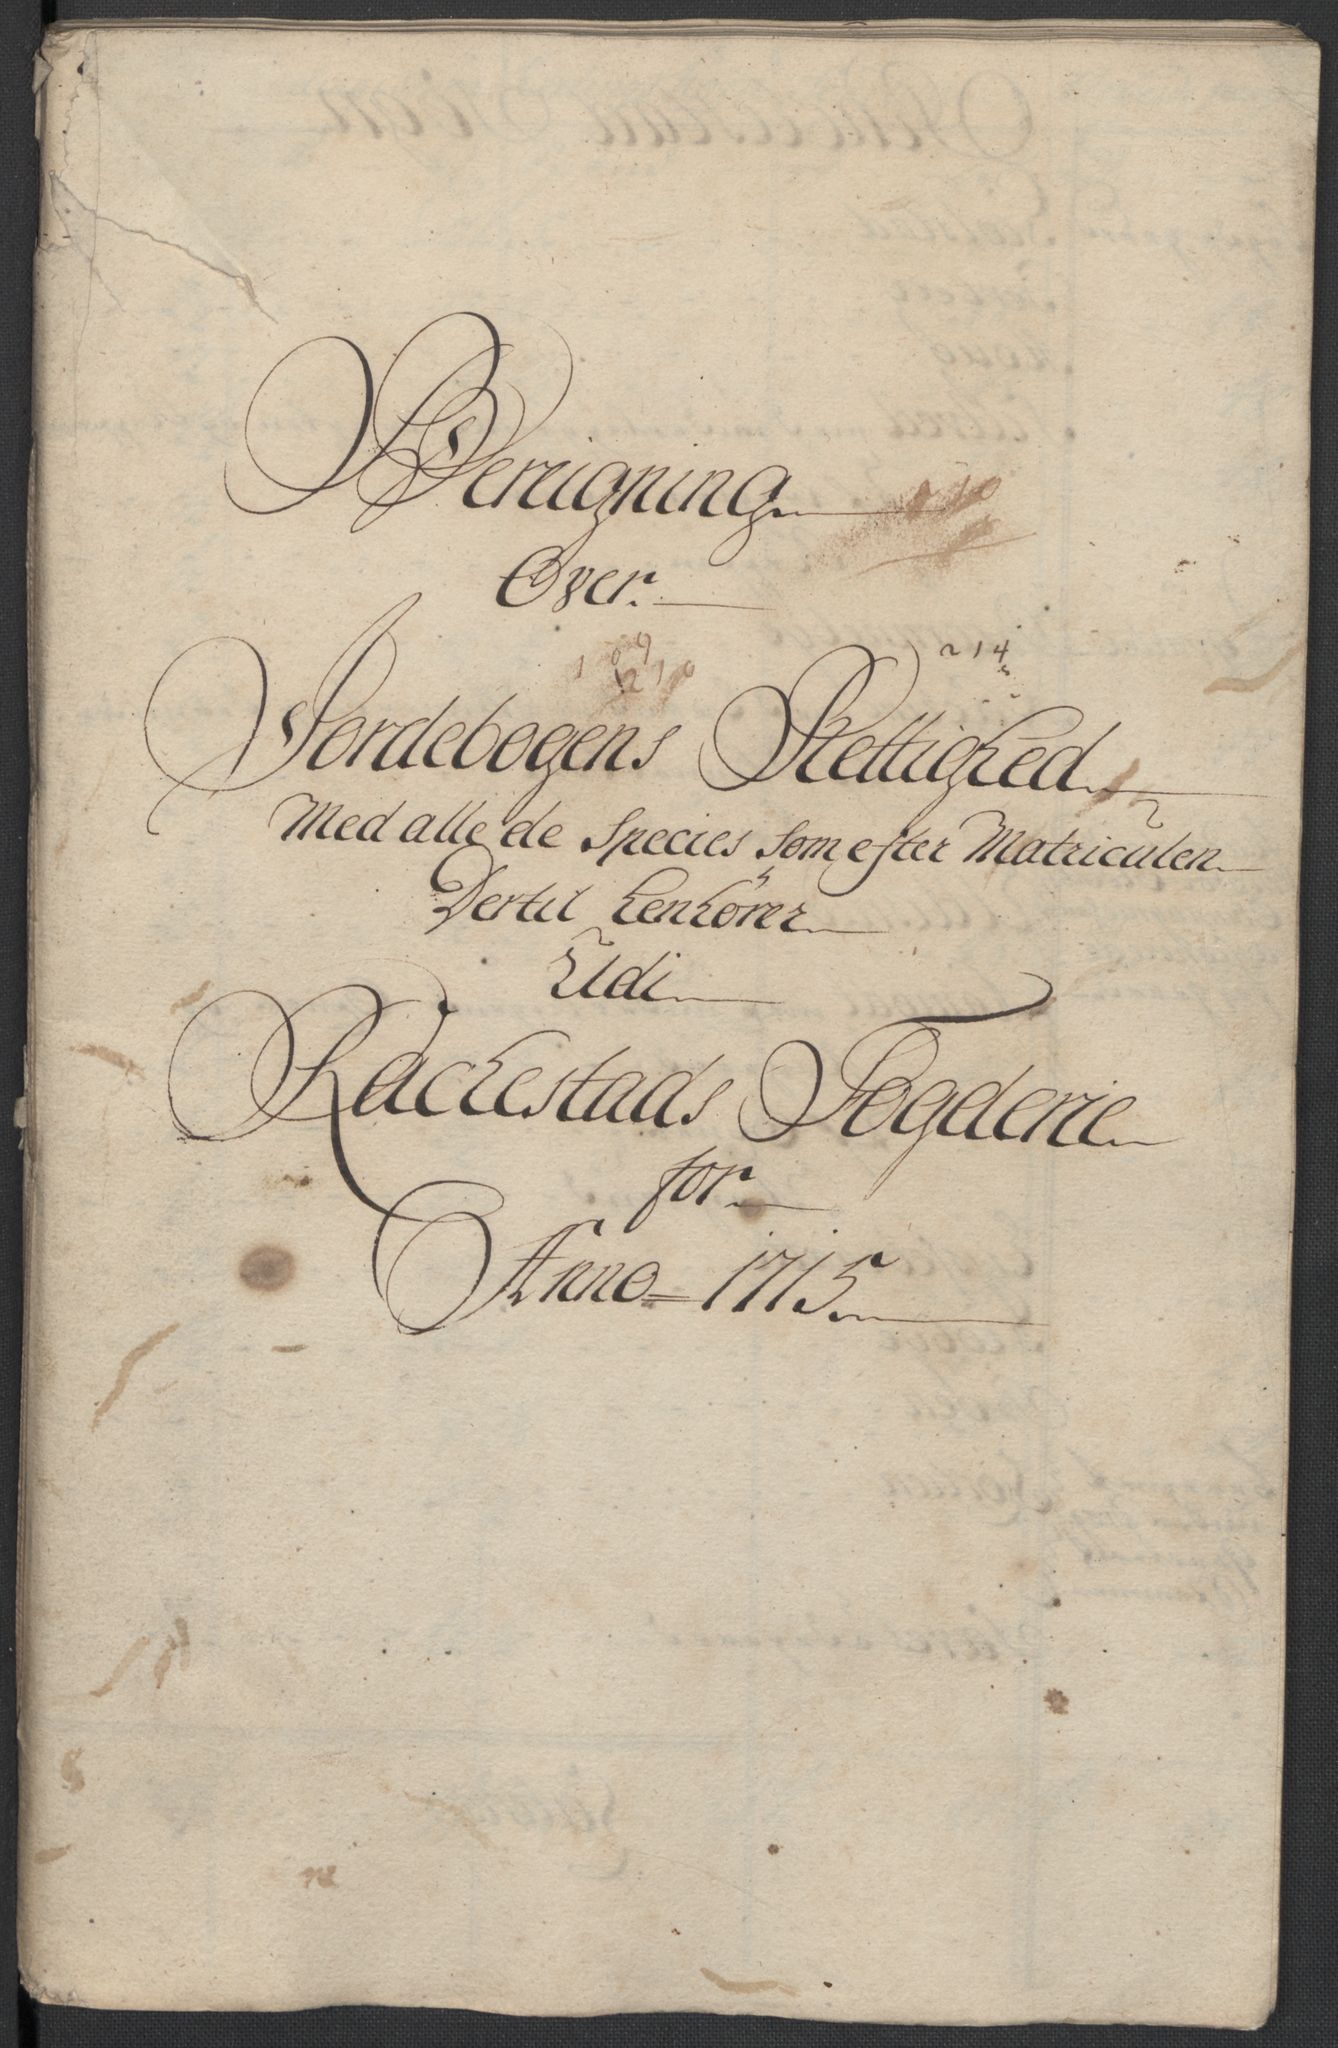 Bereigning
Over
214
Jordebogens Rettighed
Med alle de Species som efter Matriculen
Dertil henhører
Udi
Rackestads Fogderie
for
Anno 1715